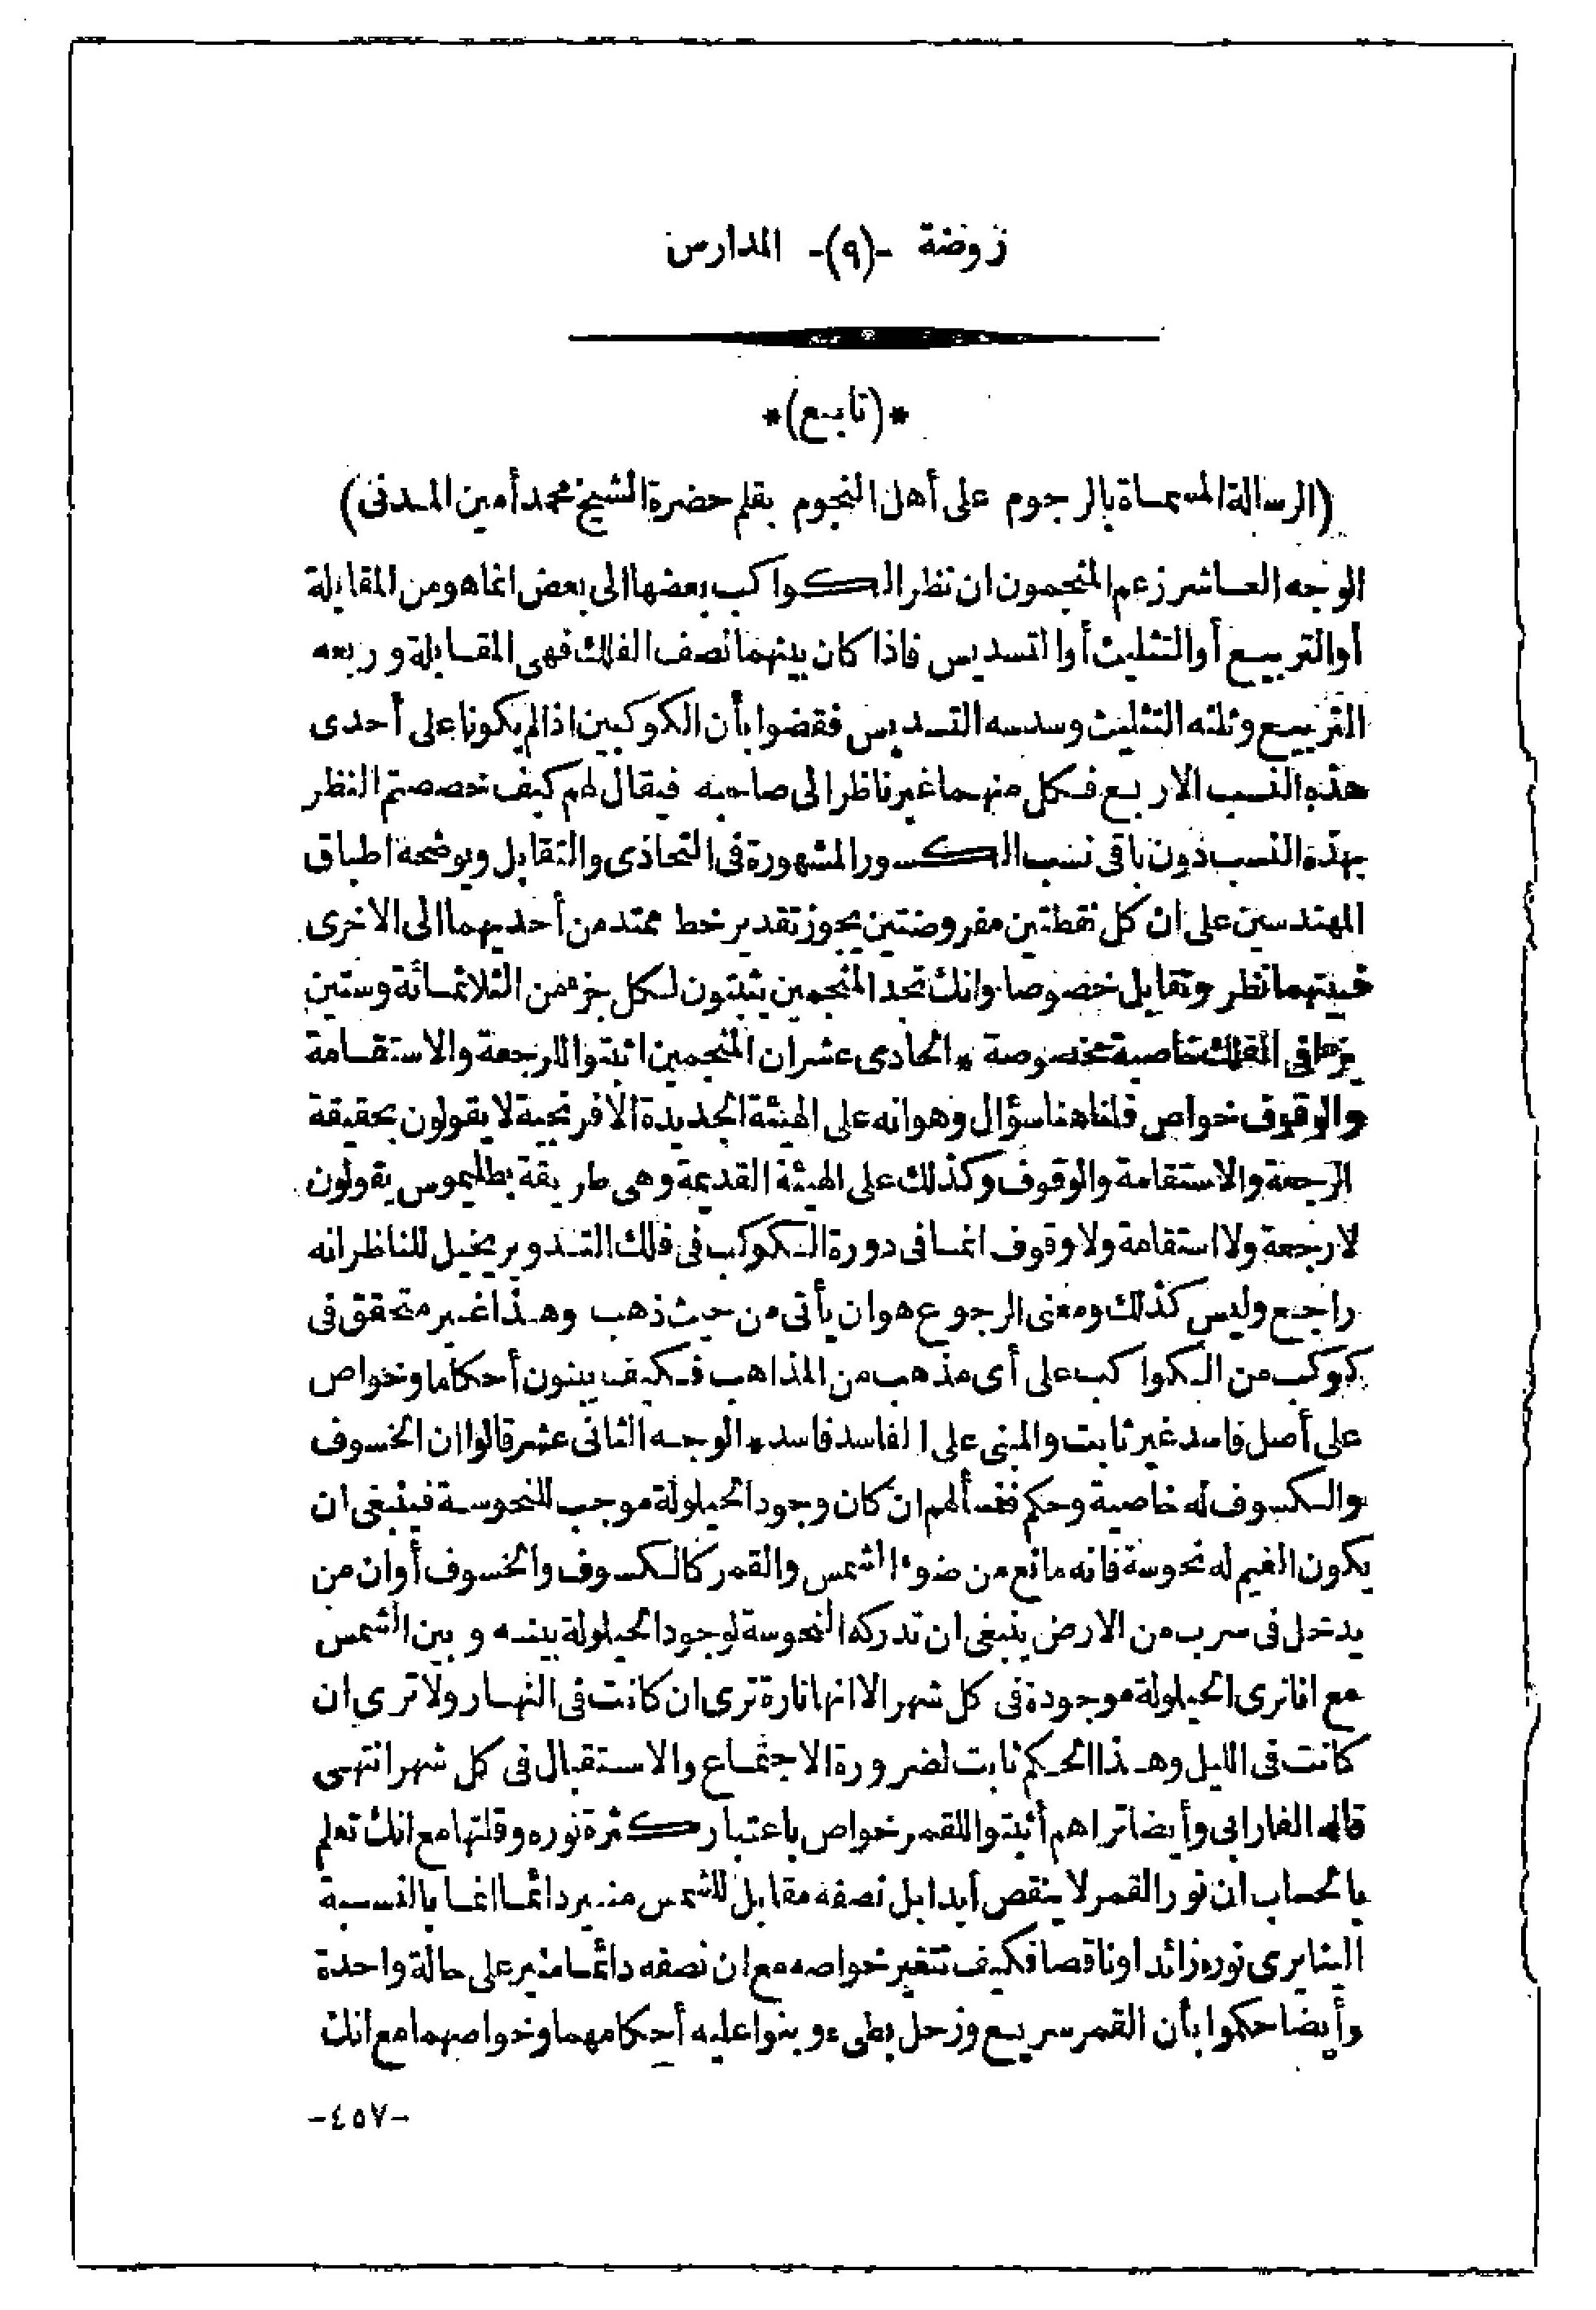 روضة -(٩)- المدارس
*(تابع)*
(الرسالة المسماة بالرجوم على أهل النجوم بقلم حضرة الشيخ محمد أمين المدنى)
الوجه العاشر زعم المنجمون ان نظر الكواكب بعضها الى بعض انما هو من المقابلة
أو التربيع أو التثليث أو التسديس فاذا كان بينهما نصف الفلك فهى المقابلة وربعه
التربيع وثلثه التثليث وسدسه التسديس فقضوا بأن الكوكبين اذا لم يكونا على أحدى
هذه النسب الاربع فكل منهما غير ناظر الى صاحبه فيقال لهم كيف خصصتم النظر
بهذه النسب دون باقى نسب الكسور المشهورة فى التحاذى والتقابل ويوضحه اطباق
المهندسين على ان كل نقطتين مفروضتين يجوز تقدير خط ممتد من أحديهما الى الاخرى
فبينهما تظر وتقابل خصوصا وانك تجد المنجمين يثبتون لكل جزء من الثلاثمائة وستين
جزءا فى الفلك خاصية مخصوصة * الحادى عشر ان المنجمين اثبتوا للرجعة والاستقامة
والوقوف خواص قلنا هنا سؤال وهو انه على الهيئة الجديدة الافرنجية لا يقولون بحقيقة
الرجعة والاستقامة والوقوف وكذلك على الهيئة القديمة وهى طريقة بطليموس يقولون
لا رجعة ولا استقامة ولا وقوف انما فى دورة الكوكب فى فلك التدوير يخيل للناظر انه
راجع وليس كذلك ومعنى الرجوع هو ان يأتى من حيث ذهب وهذا غير متحقق فى
كوكب من الكواكب على أى مذهب من المذاهب فكيف يبنون أحكاما وخواص
على أصل فاسد غير ثابت والمبنى على الفاسد فاسد * الوجه الثانى عشر قالوا ان الخسوف
والكسوف له خاصية وحكم فنسألهم ان كان وجود الحيلولة موجب للنحوسة فينبغى ان
يكون الغيم له نحوسة فانه مانع من ضوء الشمس والقمر كالكسوف والخسوف أو ان من
يدخل فى سرب من الارض ينبغى ان تدركه النحوسة لوجود الحيلولة بينه وبين الشمس
مع انا نرى الحيلولة موجودة فى كل شهر الا انها تارة ترى ان كانت فى النهار ولا ترى ان
كانت فى الليل وهذا الحكم ثابت لضرورة الاجتماع والاستقبال فى كل شهر انتهى
قاله الفارابى وأيضا تراهم أثبتوا للقمر خواص باعتبار كثرة نوره وقلتها مع انك تعلم
بالحساب ان نور القمر لا ينقص أبدا بل نصفه مقابل للشمس منير دائما انما بالنسبة
الينا يرى نوره زائدا وناقصا فكيف تتغير خواصه مع ان نصفه دائما منير على حالة واحدة
وأيضا حكموا بأن القمر سريع وزحل بطىء وبنوا عليه أحكامهما وخواصهما مع انك
-٤٥٧-